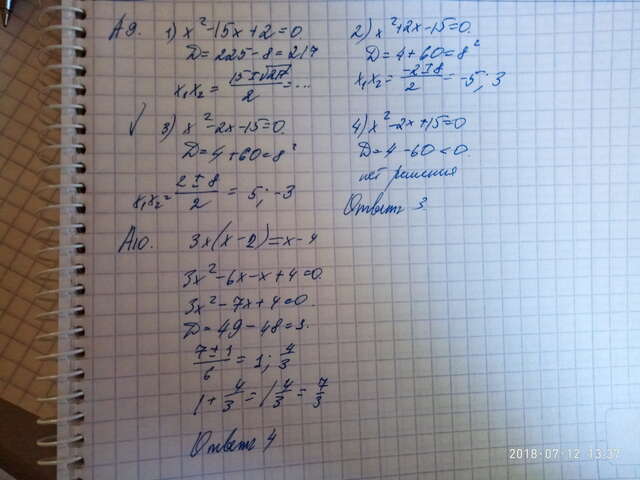 А9. 1) x²-15x+2=0.
D=225-8=217
x₁x₂ = (15±√217)/2 = ...
2) x²+2x-15=0.
D=4+60=8²
x₁x₂ = (-2±8)/2 = -5; 3
√ 3) x²-2x-15=0.
D=4+60=8²
x₁x₂ = (2±8)/2 = 5; -3
4) x²-2x+15=0
D=4-60<0.
нет решения
Ответ 3
А10. 3x(x-2)=x-4
3x²-6x-x+4=0.
3x²-7x+4=0.
D=49-48=1.
(7±1)/6 = 1; 4/3
1+4/3=1 4/3=7/3
Ответ 4
2018-07-12 13:37